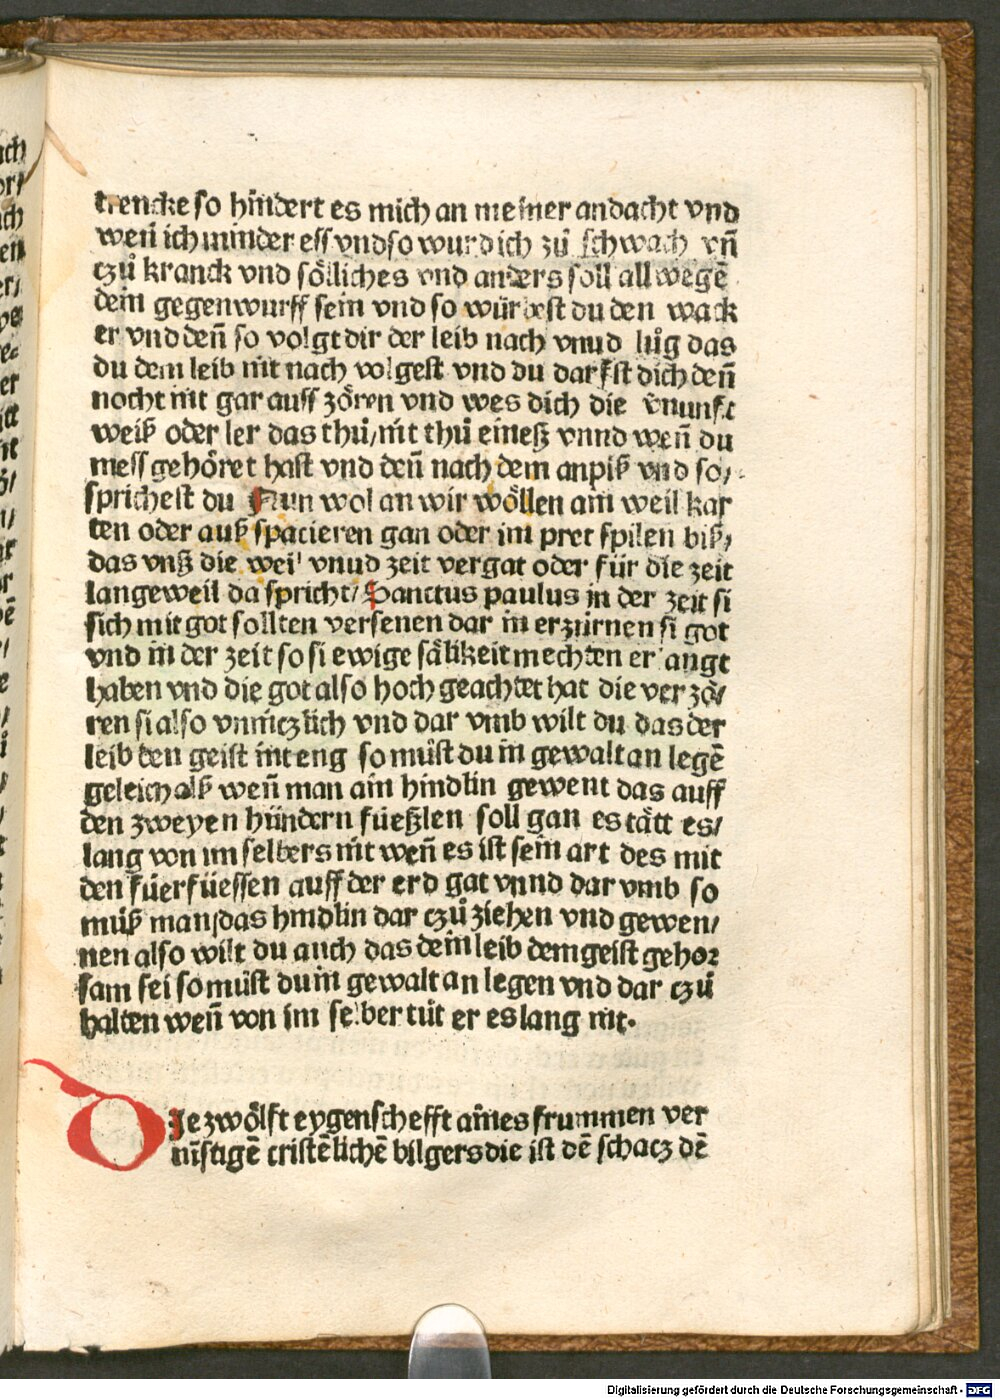 trencke so hindert es mich an meiner andacht vnd
wen̄ ich minder ess vnd so wurd ich zů schwach vn̄
czů kranck vnd sölliches vnd anders soll allwegē
dein gegenwurff sein vnd so würdest du den wack
er vnd den̄ so volgt dir der leib nach vnud lůg das
du dem leib nit nach volgest vnd du darfst dich den̄
nocht nit gar auss zören vnd wes dich die v̄nunft
weiß oder ler das thů/nit thů eineß vnnd wen̄ du
mess gehöret hast vnd den̄ nach dem anpiß vnd so/
sprichest du Nun wol an wir wöllen ain weil kar
ten oder auß spacieren gan oder im pret spilen biß/
das vnß die weil vnud zeit vergat oder für die zeit
langeweil da spricht/ Sanctus paulus in der zeit si
sich mit got sollten versenen dar in erzürnen si got
vnd in der zeit so si ewige sälikeit mechten erlangt
haben vnd die got also hoch geachtet hat die ver zö/
ren si also vnnüczlich vnd dar vmb wilt du das der
leib den geist nit eng so můst du in gewalt an legē
geleich alß wen̄ man ain hindlin gewent das auff
den zweyen hündern füeßlen soll gan es tätt es/
lang von im selbers nit wen̄ es ist sein art des mit
den füerfüessen auff der erd gat vnnd dar vmb so
můß man/das hindlin dar czů ziehen vnd gewen/
nen also wilt du auch das dein leib dem geist gehor
sam sei so můst du in gewalt an legen vnd dar czů
halten wen̄ von im selber tůt er es lang nit.
Die zwölft eygenschefft aines frummen ver
nüstigē cristēlichē bilgers die ist dē schacz dē
Digitalisierung gefördert durch die Deutsche Forschungsgemeinschaft - DFG